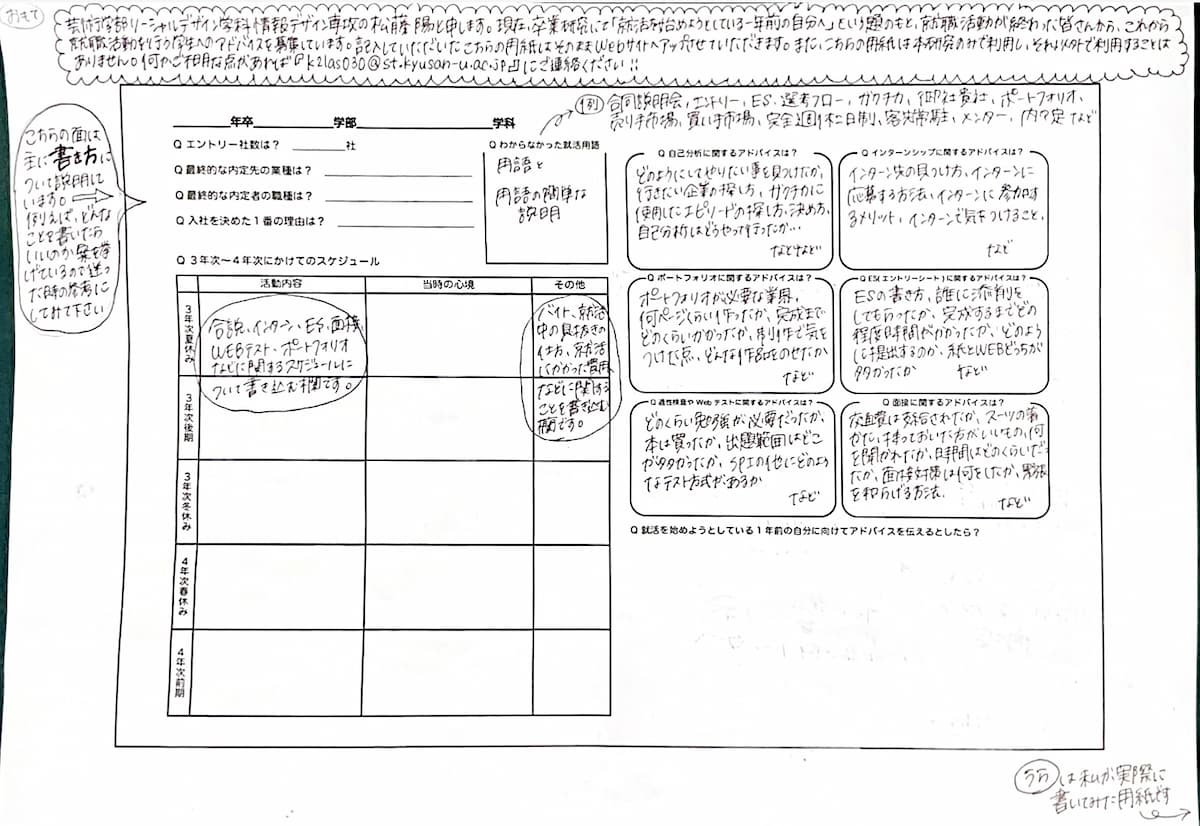 おもて
芸術学部ソーシャルデザイン学科情報デザイン専攻の松藤陽と申します。現在、卒業研究にて「就活を始めようとしている一年前の自分へ」という題のもと、就職活動が終わった皆さんから、これから
就職活動を行う学生へのアドバイスを募集しています。記入していただいたこちらの用紙はそのままWebサイトへアップさせていただきます。また、こちらの用紙は本研究のみで利用し、それ以外で利用することは
ありません。何かご不明な点があれば『k21as030@st.kyusan-u.ac.jp』にご連絡ください!!
こちらの面は
主に書き方に
ついて説明して
います。
例えば、どんな
ことを書いたら
いいのか案を挙
げているので迷っ
た時の参考に
してみて下さい
例 合同説明会、エントリー、ES、選考フロー、ガクチカ、御社貴社、ポートフォリオ、
売り手市場、買い手市場、完全週休二日制、客先常駐、メンター、内々定 など
年卒 学部 学科
Q エントリー社数は? 社
Q 最終的な内定先の業種は?
Q 最終的な内定者の職種は?
Q 入社を決めた1番の理由は?
Q わからなかった就活用語
用語と
用語の簡単な
説明
Q 3年次〜4年次にかけてのスケジュール
活動内容 当時の心境 その他
3年次夏休み
合説、インターン、ES、面接、
WEBテスト、ポートフォリオ
などに関するスケジュールに
ついて書き込む欄です。
バイト、就活
中の息抜きの
仕方、就活
にかかった費用
などに関する
ことを書き込む
欄です。
3年次後期
3年次冬休み
4年次春休み
4年次前期
Q 自己分析に関するアドバイスは?
どのようにしてやりたい事を見つけたか、
行きたい企業の探し方、ガクチカに
使用したエピソードの探し方、決め方、
自己分析はどうやって行ったか…
などなど
Q インターンシップに関するアドバイスは?
インターン先の見つけ方、インターンに
応募する方法、インターンに参加す
るメリット、インターンで気をつけること、
など
Q ポートフォリオに関するアドバイスは?
ポートフォリオが必要な業界、
何ページくらい作ったか、完成まで
どのくらいかかったか、制作で気を
つけた点、どんな作品をのせたか
など
Q ES(エントリーシート)に関するアドバイスは?
ESの書き方、誰に添削を
してもらったか、完成するまでどの
程度時間がかかったか、どのよう
に提出するのか、紙とWEBどっちが
多かったか など
Q 適性検査や Web テストに関するアドバイスは?
どのくらい勉強が必要だったか、
本は買ったか、出題範囲はどこ
が多かったか、SPIの他にどのよう
なテスト方式があるか
など
Q 面接に関するアドバイスは?
交通費は支給されたか、スーツの着
かた、持っておいた方がいいもの、何
を聞かれたか、時間はどのくらいだっ
たか、面接対策は何をしたか、緊張
を和らげる方法.
など
Q 就活を始めようとしている1年前の自分に向けてアドバイスを伝えるとしたら?
うらは私が実際に
書いてみた用紙です